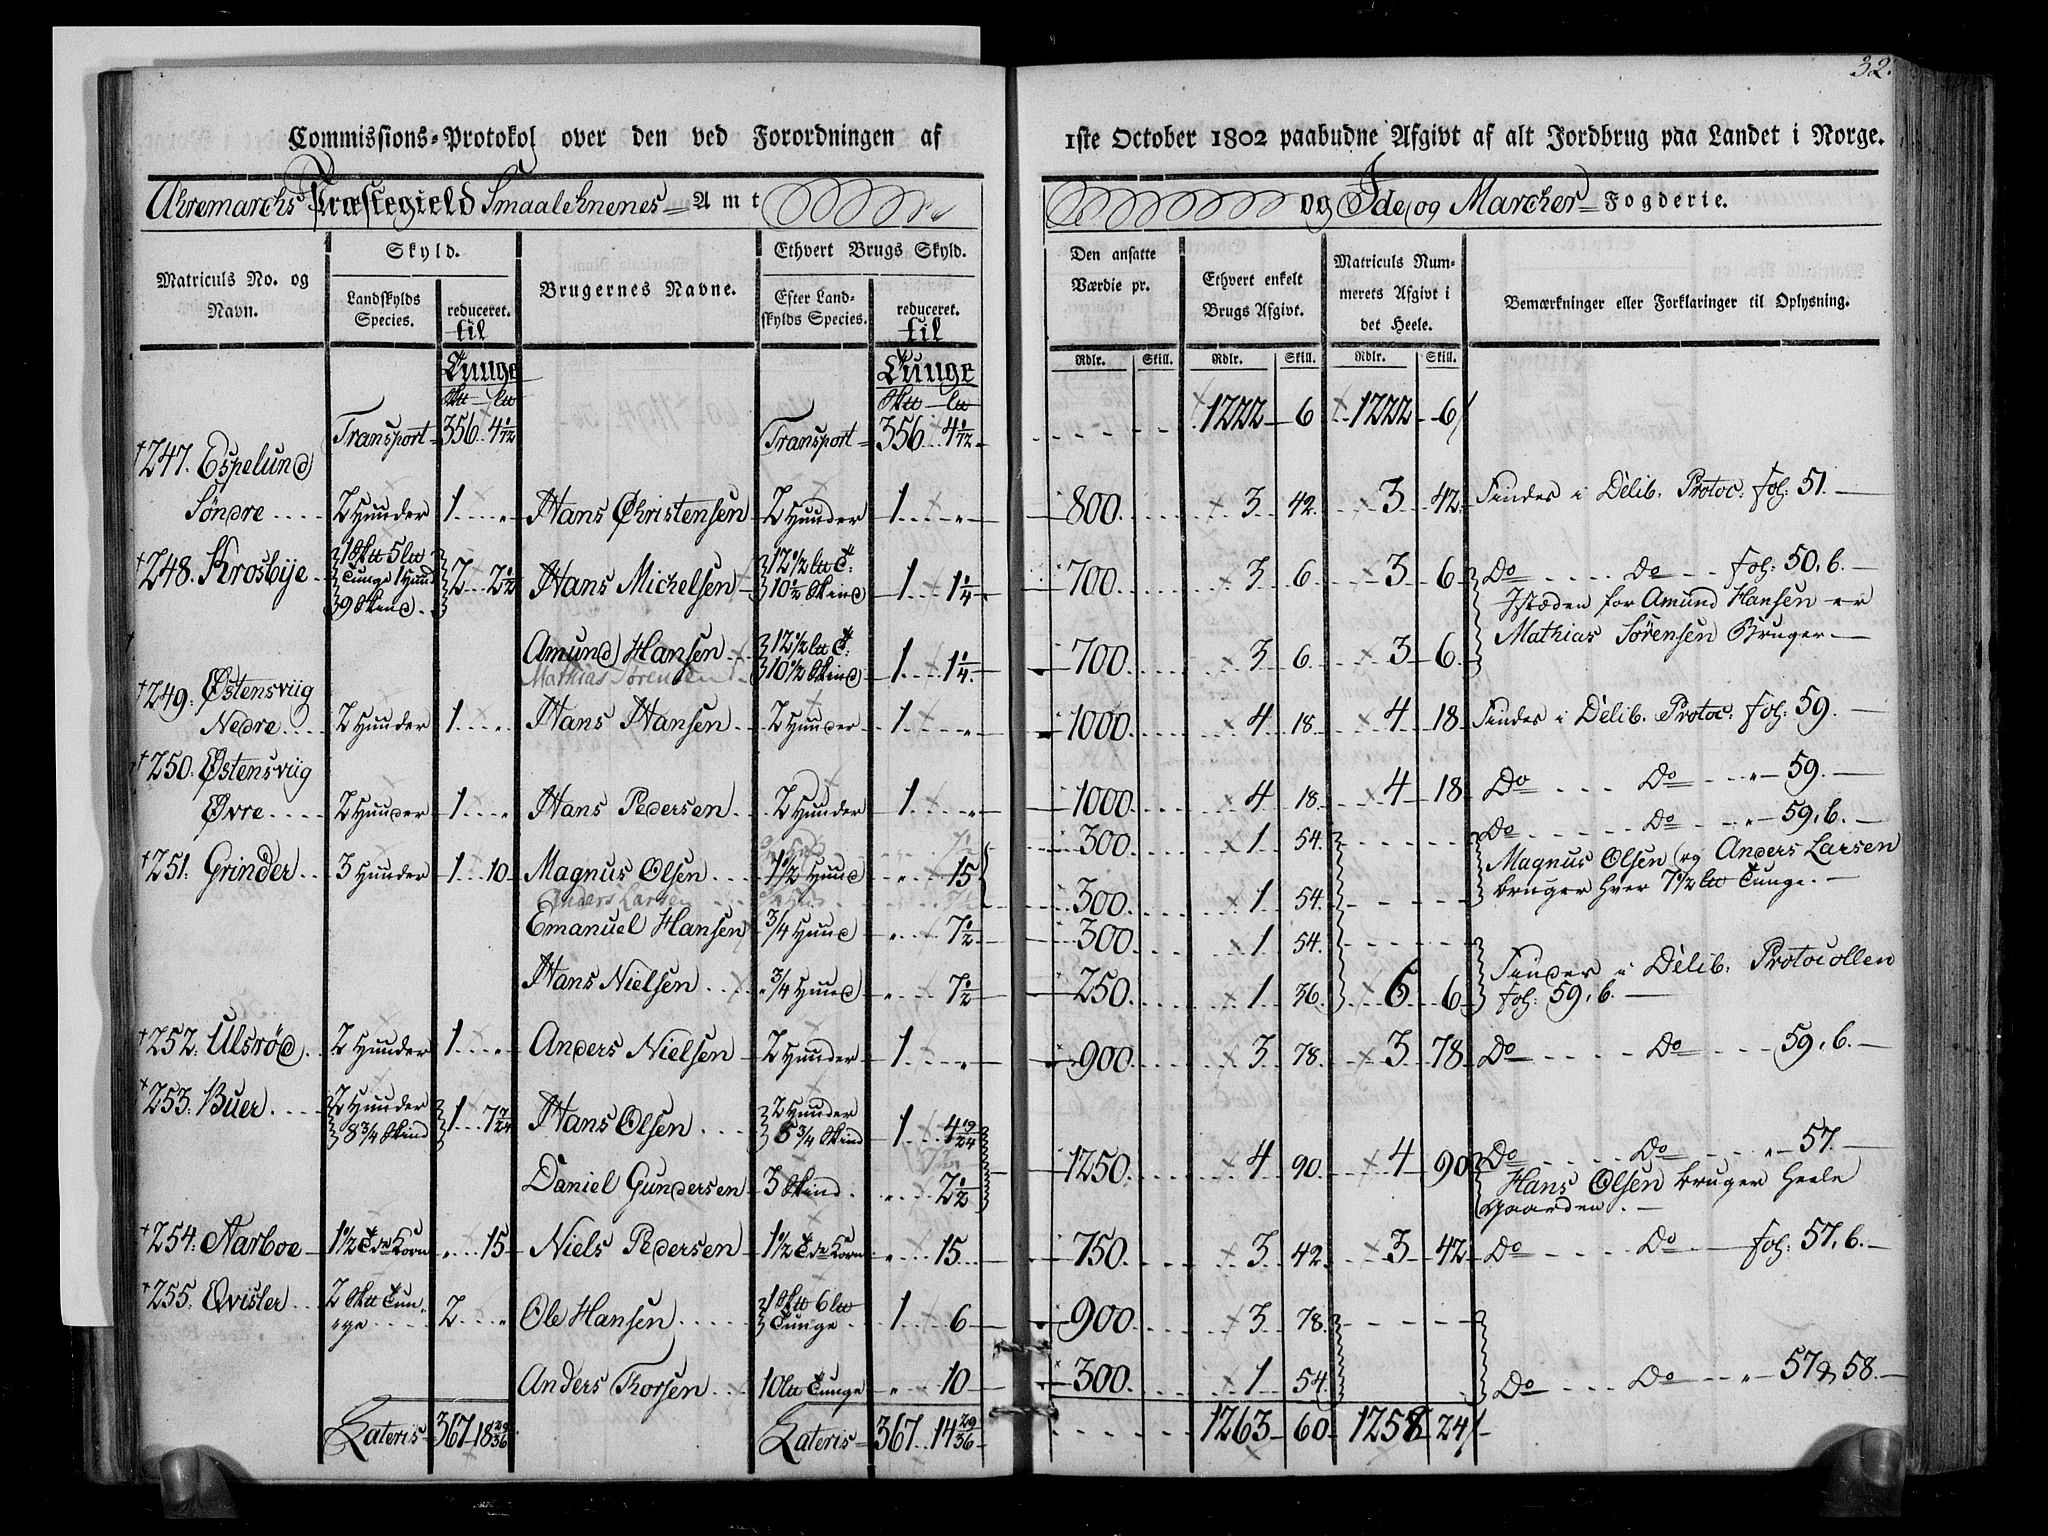 32.
Commissions-Protokol over den ved Forordningen af 1ste October 1802 paabudne Afgivt af alt Jordbrug paa Landet i Norge.
Ahremarchs Præstegield Smaalehnenes Amt og Ide og Marcker Fogderie.
Matriculs No. og Navn.
Skyld.
Landskylds Species.
reduceret. til Tunge
Brugernes Navne.
Ethvert Brugs Skyld.
Efter Landskylds Species.
reduceret. til Tunge
Den ansatte Værdie pr.
Ethvert enkelt Brugs Afgivt.
Matriculs Nummerets Afgivt i det Heele.
Bemærkninger eller Forklaringer til Oplysning.
Rdlr. Skill. Rdlr. Skill. Rdlr. Skill.
Transport 356 4 1/12 Transport 356 4 1/12 1222 6 1222 6
247. Espelund
Søndre 2 Hunder 1 " Hans Christensen 2 Hunder 1 " 800 3 42 3 42 Findes i Delib. Protoc: fol: 51.
248. Krosbye 1 Skæ 5 læ Tunge 1 Hund 9 Skind 2 2 1/2 Hans Michelsen 12 1/2 læ T: 10 1/2 Skind 1 1 1/4 700 3 6 3 6 Do Do fol: 50, b.
Istæden for Amund Hansen er
Mathias Sørensen Bruger
Amund Hansen 12 1/2 læ T: 10 1/2 Skind 1 1 1/4 700 3 6 3 6
Mathias Sørensen
249. Østensviig
Nedre 2 Hunder 1 " Hans Hansen 2 Hunder 1 " 1000 4 18 4 18 Findes i Delib. Protoc: fol: 59.
250. Østensviig
Øvre 2 Hunder 1 " Hans Pedersen 2 Hunder 1 " 1000 4 18 4 18 Do Do " 59.
300 1 54 Do Do " 59, b.
251. Grinder 3 Hunder 1 10 Magnus Olsen 1 1/2 Hund " 15 300 1 54 Magnus Olsen og Anders Larsen
bruger hver 7 1/2 læ Tunge.
Anders Larsen
Emanuel Hansen 3/4 Hund " 7 1/2 300 1 54
Hans Nielsen 3/4 Hund " 7 1/2 250 1 36 6 6 Findes i Delib: Protocollen
fol: 59, b.
252. Ulsrød 2 Hunder 1 " Anders Nielsen 2 Hunder 1 " 900 3 78 3 78 Do Do 59, b.
253. Buer 2 Hunder 8 3/4 Skind 1 7 7/24 Hans Olsen 2 Hunder 5 3/4 Skind 1 4 19/24 1250 4 90 4 90 Do Do " 57.
Hans Olsen bruger Heele
Gaarden.
Daniel Gundersen 3 Skind " 2 1/2
254. Aarboe 1 1/2 Tde Korn " 15 Niels Pedersen 1 1/2 Tde Korn " 15 750 3 42 3 42 Do Do fol: 57, b.
255. Qvisler 2 Skæ Tunge 2 " Ole Hansen 1 Skæ 6 læ Tunge 1 6 900 3 78
Anders Torsen 10 læ Tunge " 10 300 1 54 Do Do " 57 & 58.
Lateris 367 18 29/36 Lateris 367 14 29/36 1263 60 1258 24